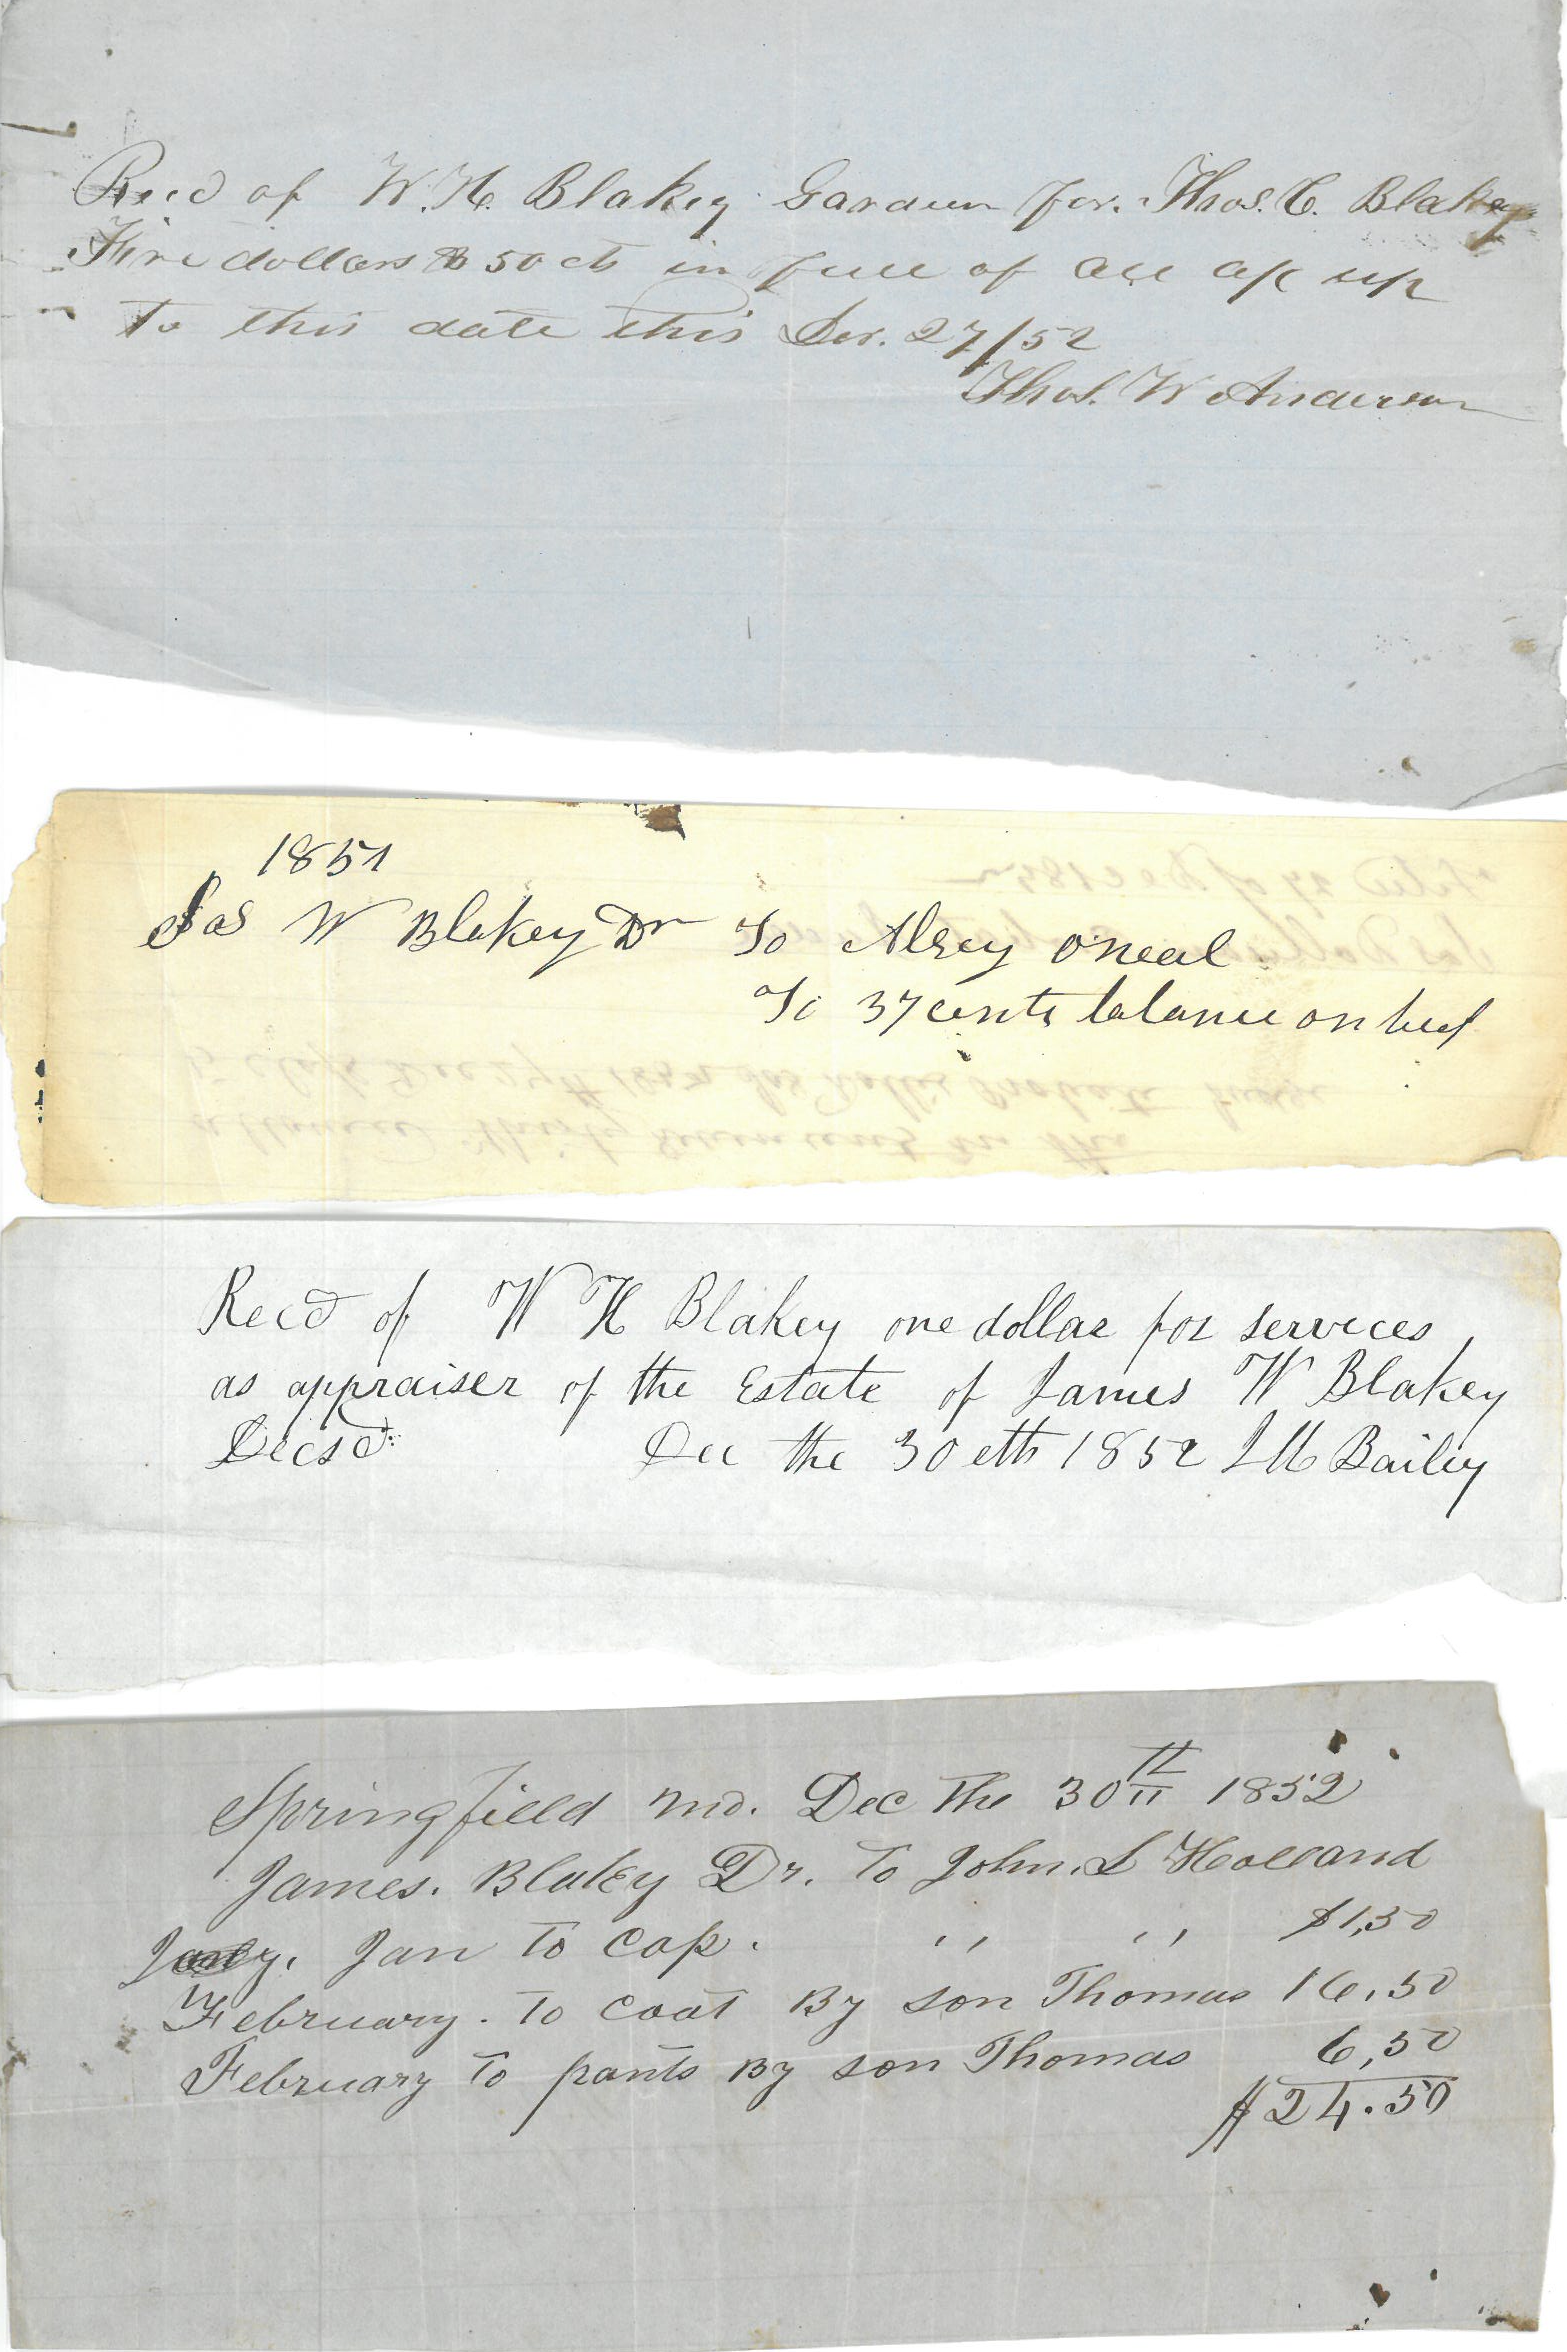 Recd of W. H. Blakey Gardeen for. Thos. C. Blakey
Five dollars & 50 cts in full of all a/c up
to this date this Dec. 27/52
Thos. W Anderson
1851
Jas W Blakey Dr To Alsey oneal
To 37 cents balance on beef
Recd of W H Blakey one dollar for services
as appraiser of the Estate of James W Blakey
Decsd Dec the 30 eth 1852 J M Bailey
Springfield Mo. Dec The 30th 1852
James. Blakey Dr. To John. L Holland
Jan To Cap. " " $1,50
February. To Coat By son Thomas 16,50
February To pants By son Thomas 6,50
$24.50